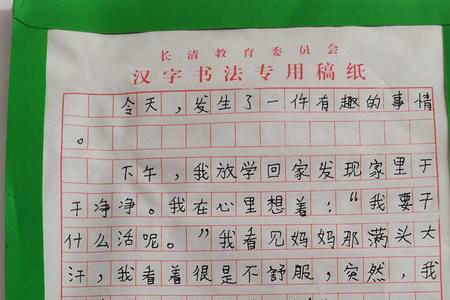 长清教育委员会
汉字书法专用稿纸
今天，发生了一件有趣的事情
。
下午，我放学回家发现家里干
干净净。我在心里想着：“我要干
什么活呢。”我看见妈妈那满头大
汗，我看着很是不舒服，突然，我